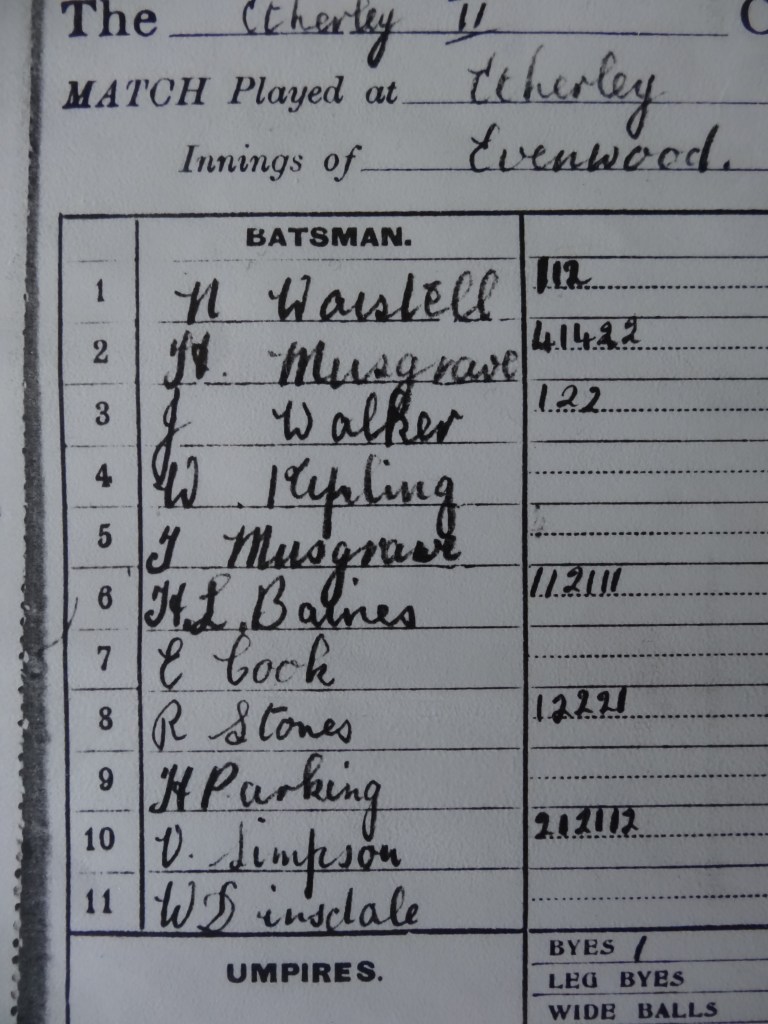 The Etherley II C
MATCH Played at Etherley
Innings of Evenwood.
BATSMAN.
1 N Warstell 112
2 H. Musgrave 41422
3 J Walker 122
4 W. Kipling
5 J Musgrave
6 H.L. Baines 112111
7 E Cook
8 R Stones 12221
9 H Parking
10 V. Simpson 212112
11 W Dinsdale
UMPIRES.
BYES 1
LEG BYES
WIDE BALLS